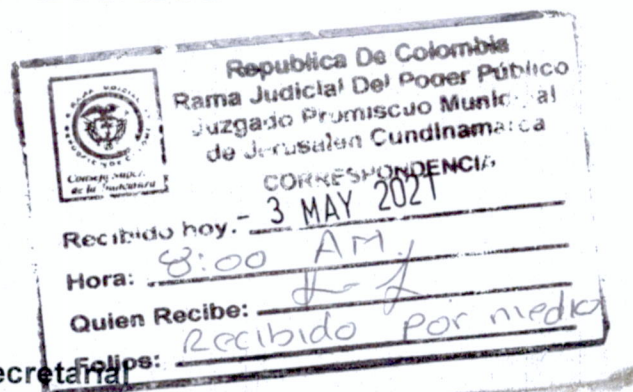 Republica De Colombia
Rama Judicial Del Poder Público
Juzgado Promiscuo Municipal
de Jerusalen Cundinamarca
CORRESPONDENCIA
Recibido hoy.- 3 MAY 2021
Hora: 8:00 AM.
Quien Recibe:
Folios: Recibido por medio
ecretarial